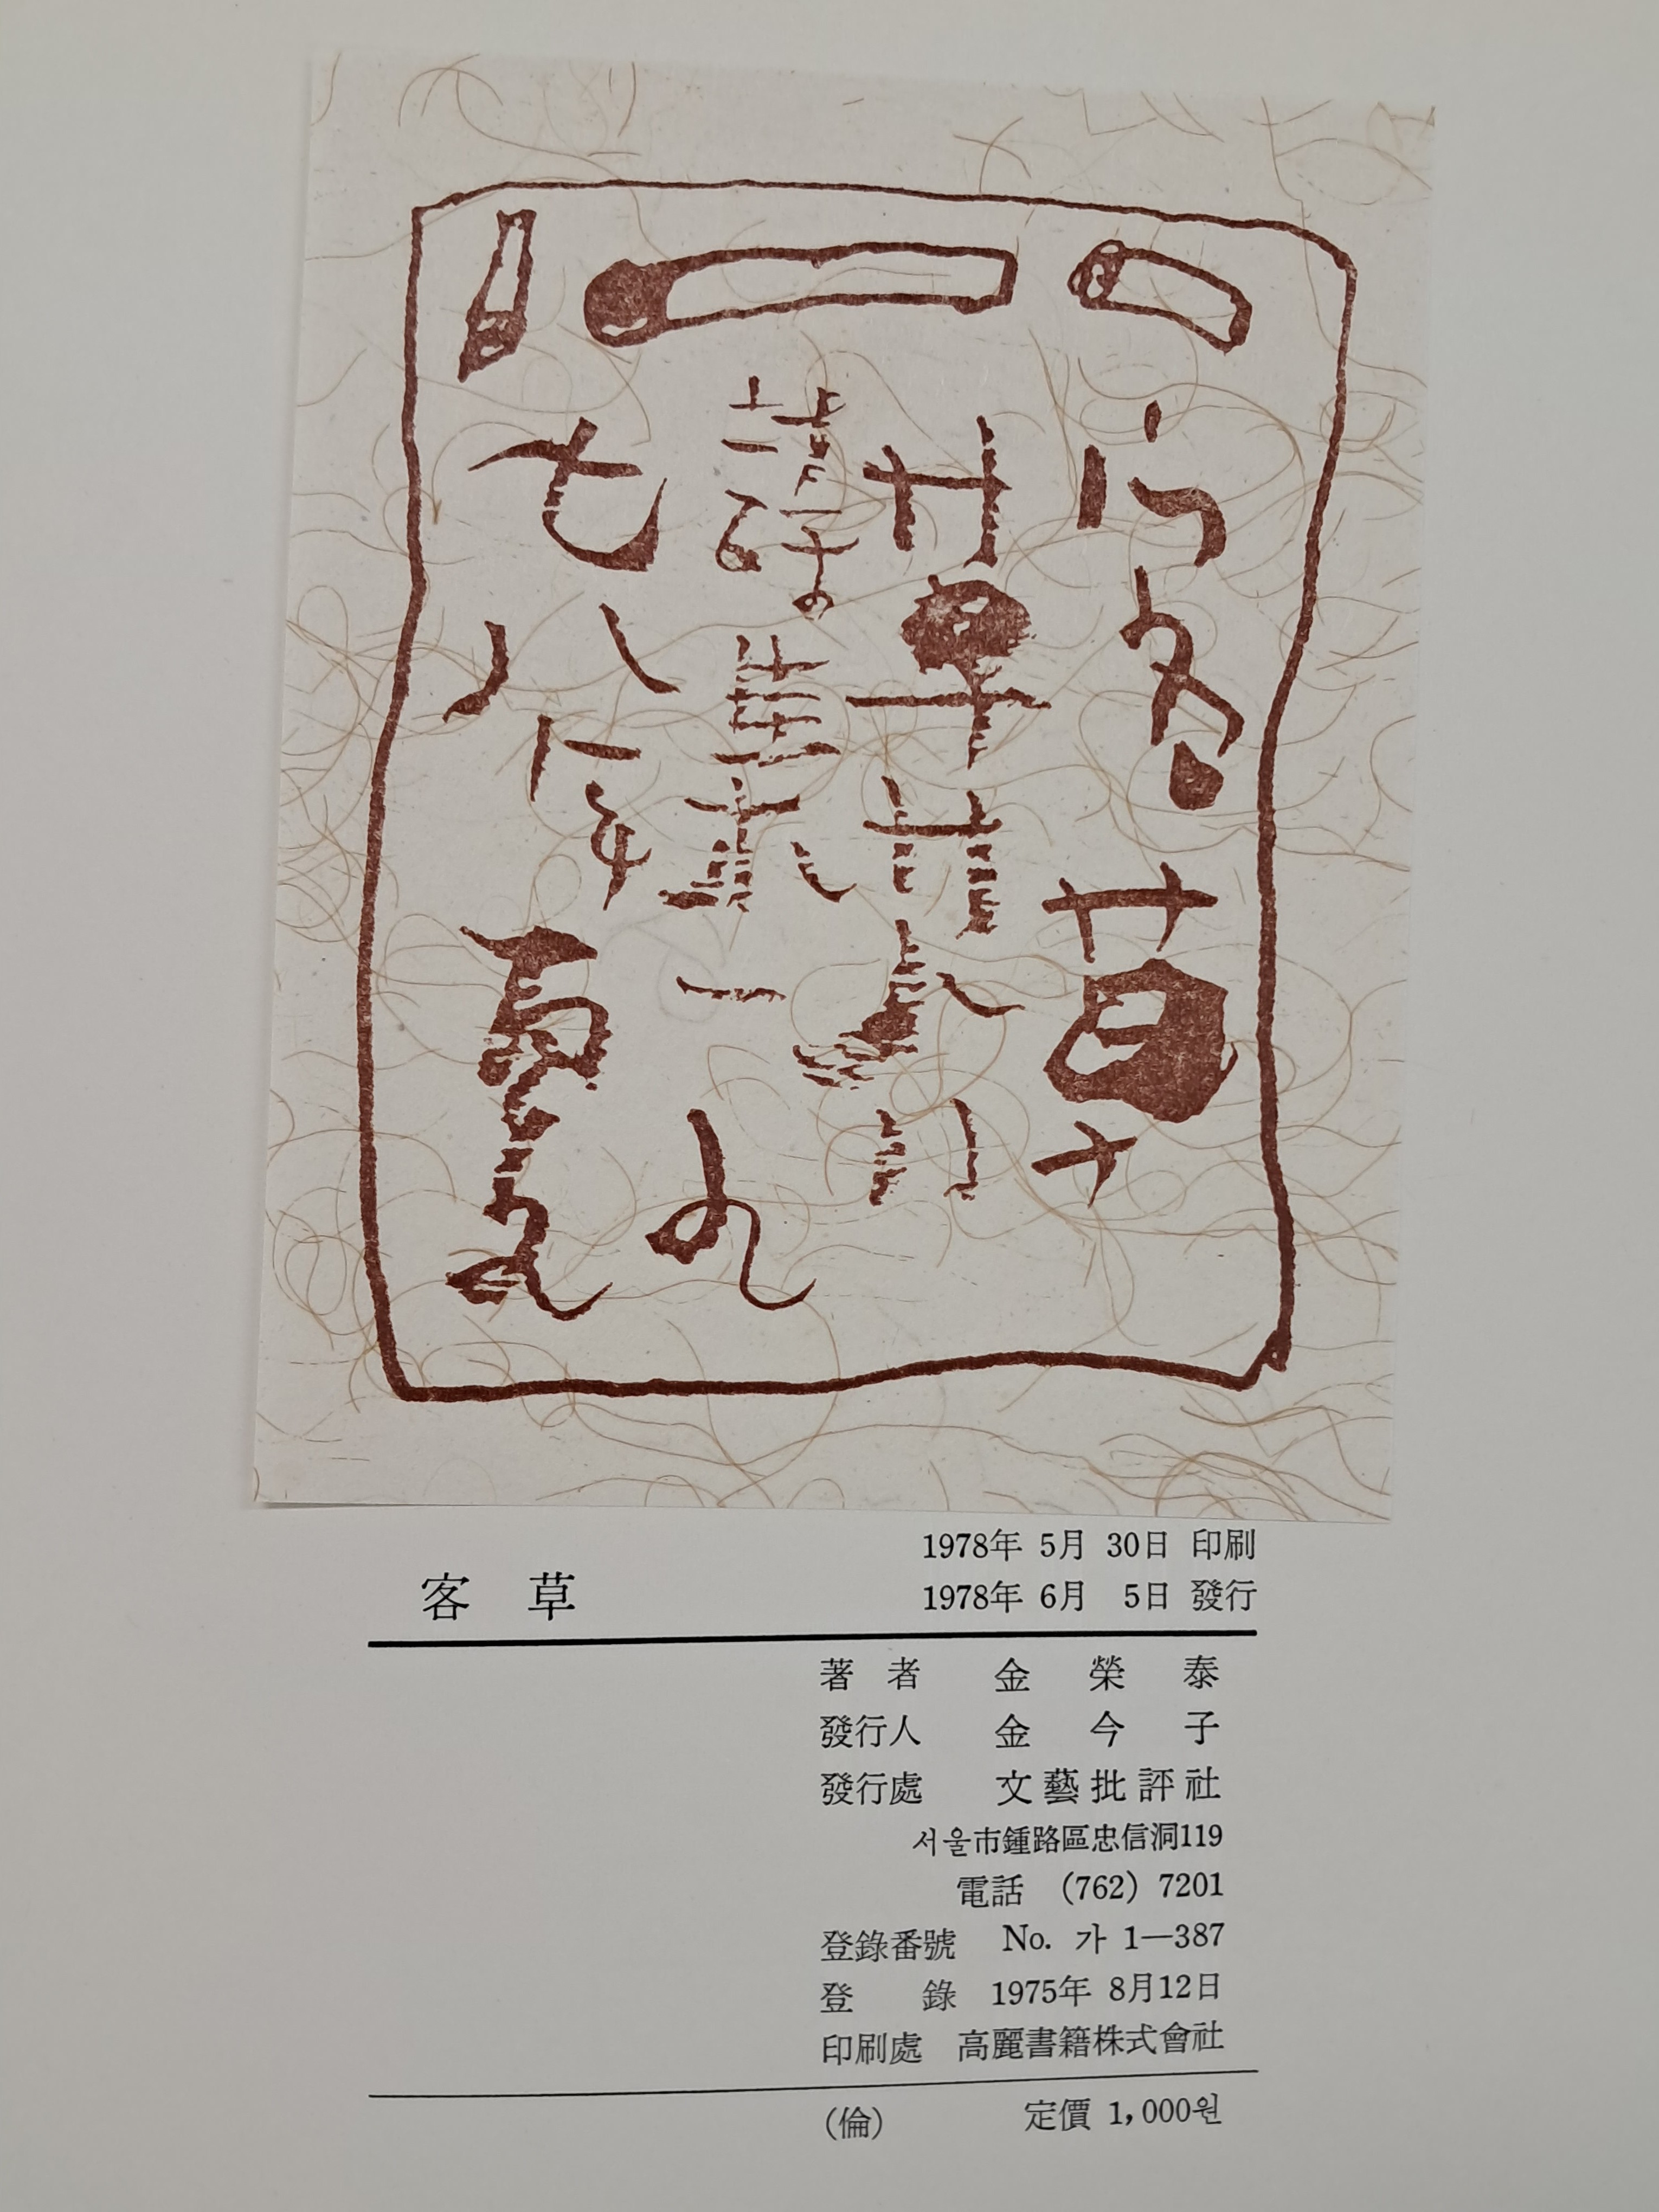 客
草
一九
七八年夏
1978年 5月 30日 印刷
客 草
1978年 6月 5日 發行
著 者 金 榮 泰
發行人 金 今 子
發行處 文藝批評社
서울市鍾路區忠信洞119
電話 (762) 7201
登錄番號 No. 가 1—387
登 錄 1975年 8月12日
印刷處 高麗書籍株式會社
(倫) 定價 1,000원